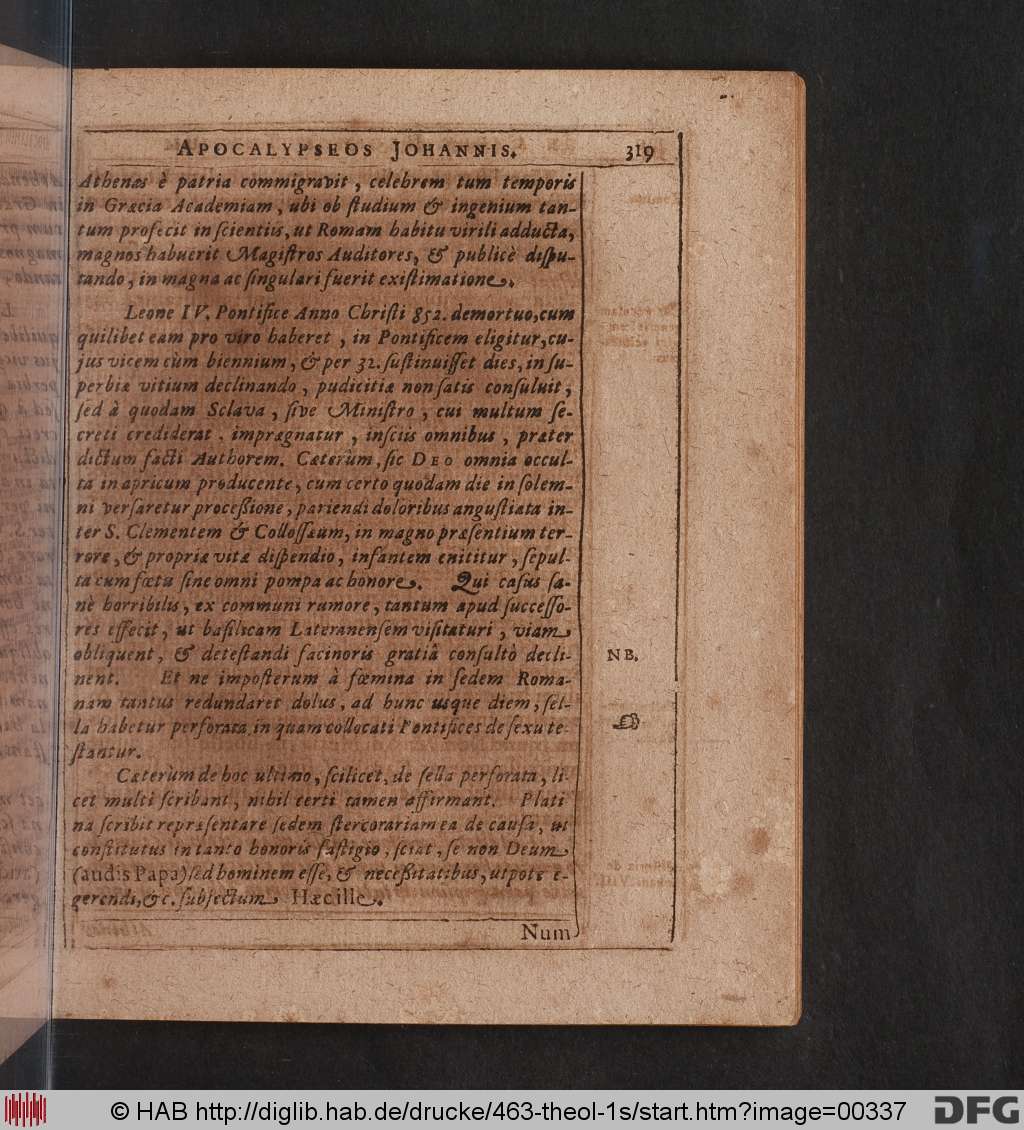 APOCALYPSEOS JOHANNIS. 319
Athenas è patria commigravit, celebrem tum temporis
in Græcia Academiam, ubi ob ſtudium & ingenium tan-
tum profecit in ſcientiis, ut Romam habitu virili adducta,
magnos habuerit Magiſtros Auditores, & publicè diſpu-
tando, in magna ac ſingulari fuerit exiſtimatione.
Leone IV. Pontifice Anno Chriſti 852. demortuo, cum
quilibet eam pro viro haberet, in Pontificem eligitur, cu-
jus vicem cùm biennium, & per 32. ſuſtinuiſſet dies, in ſu-
perbiæ vitium declinando, pudicitiæ non ſatis conſuluit,
ſed à quodam Sclava, ſive Miniſtro, cui multum ſe-
creti crediderat, imprægnatur, inſciis omnibus, præter
dictum facti Authorem. Cæterùm, ſic DEO omnia occul-
ta in apricum producente, cum certo quodam die in ſolem-
ni verſaretur proceßione, pariendi doloribus anguſtiata in-
ter S. Clementem & Colloſſæum, in magno præſentium ter-
rore, & propriæ vitæ diſpendio, infantem enititur, ſepul-
ta cum fœtu ſine omni pompa ac honore. Qui caſus ſa-
nè horribilis, ex communi rumore, tantum apud ſucceſſo-
res effecit, ut baſilicam Lateranenſem viſitaturi, viam
obliquent, & deteſtandi facinoris gratiâ conſultò decli-
nent. Et ne impoſterum à fœmina in ſedem Roma-
nam tantus redundaret dolus, ad hunc usque diem, ſel-
la habetur perforata, in quam collocati Pontifices de ſexu te-
ſtantur.
NB.
Cæterùm de hoc ultimo, ſcilicet, de ſella perforata, li-
cet multi ſcribant, nihil certi tamen affirmant. Plati
na ſcribit repræſentare ſedem ſtercorariam ea de cauſa, ut
conſtitutus in tanto honoris faſtigio, ſciat, ſe non Deum
(audis Papa) ſed hominem eſſe, & neceßitatibus, utpote e-
gerendi, &c. ſubjectum Hæc ille.
Num
© HAB http://diglib.hab.de/drucke/463-theol-1s/start.htm?image=00337
DFG